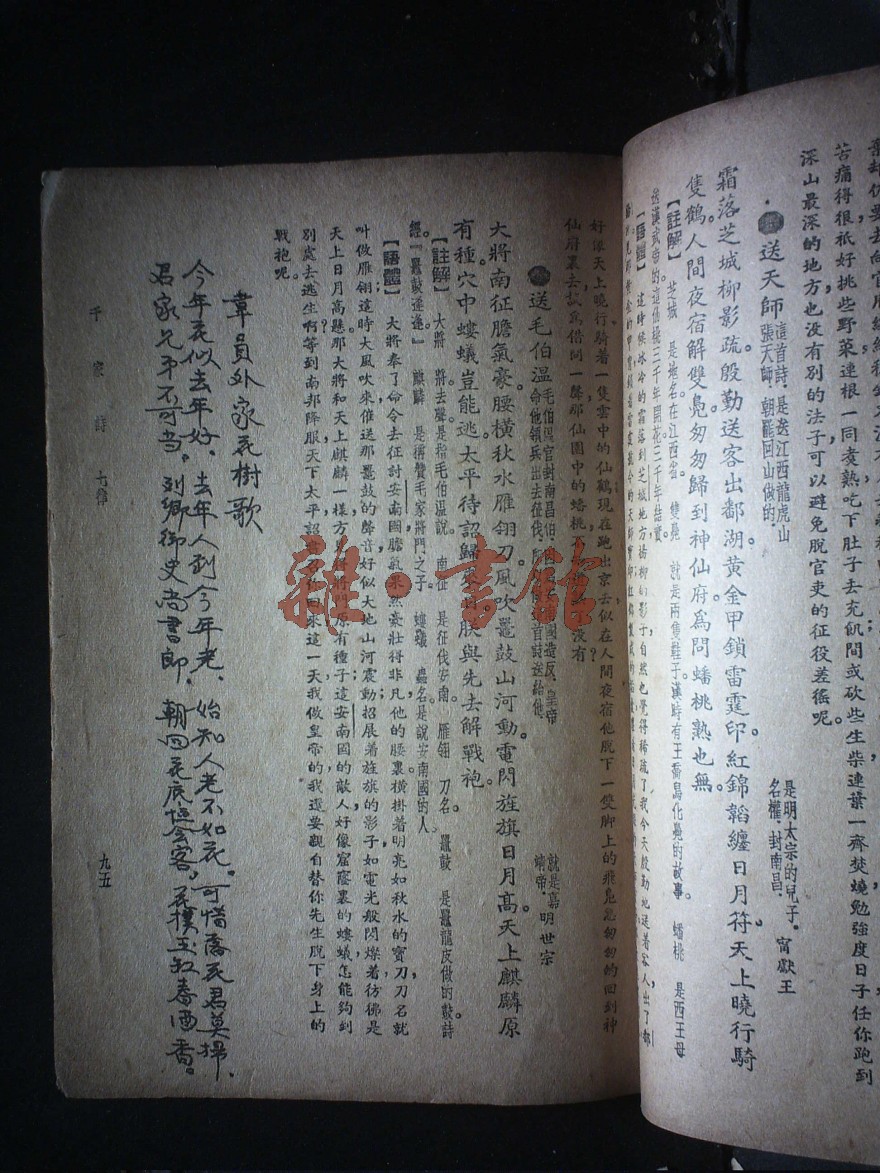 葉却仍要去向官廳納稅
苦痛得很祇好挑些野菜連根一同煑熟吃下肚子去充飢間或砍些生柴連葉一齊焚燒勉強度日子任你跑到
深山最深的地方也沒有別的法子可以避免脫官吏的征役差徭呢。
送天師 這首詩是送江西龍虎山張天師朝罷回山做的 是明太宗的兒子。名權封南昌。 甯獻王
霜落芝城柳影疏。殷勤送客出鄱湖。黃金甲鎖雷霆印。紅錦韜纏日月符。天上曉行騎
隻鶴。人間夜宿解雙鳧。匆匆歸到神仙府。爲問蟠桃熟也無。
【註解】芝城 是地名在江西省。 雙鳧 就是兩隻鞋子漢時有王喬舄化鳧的故事。 蟠桃 是西王母
送漢武帝的這仙桃三千年開花三千年結實。
【語體】這時候冰冷的霜落到芝城地方楊柳的影子自然也覺得稀疏了我今天殷勤地送着客人出了鄱
好像天上曉行騎着一隻雲中的仙鶴現在跑出京去似在人間夜宿他脫下一雙脚上的飛鳧急匆匆的回到神
仙府裏去試爲借問一聲那仙園中的蟠桃
送毛伯溫 毛伯溫官封南昌伯 命他領兵出去征伐 國造反皇帝 首詩送給他 就是嘉靖帝。 明世宗
大將南征膽氣豪。腰橫秋水雁翎刀。風吹鼉鼓山河動。電閃旌旗日月高。天上麒麟原
有種。穴中螻蟻豈能逃。太平待詔歸來日。朕與先生解戰袍。
【註解】大將 將去聲是指毛伯溫說。 南征 是征伐安南。 雁翎 刀名。 鼉鼓 是鼉龍皮做的鼓詩
經『鼉鼓逢逢』 麒麟 是稱贊毛家將門之子。 螻蟻 蟲名是說安南國的人。
【語體】大將奉了命令去征討安南國膽氣果然豪壯得非凡他的腰裏橫掛着明亮如秋水的寶刀刀名就
叫做雁翎這時大風吹來催送那鼉鼓的聲音好似大地山河震動招展着旌旗的影子如電光般閃爍着彷彿是
天上日月高懸那大將和天上麒麟一樣方見得將門原有種子這安南國的敵人好像窟窿裏的螻蟻怎能夠到
別處去逃生啊等到南邦降服天下太平詔書召你回來這一天我做皇帝的我還要親自替你先生脫下身上的
戰袍呢。
韋員外家花樹歌
今年花似去年好、去年人到今年老、始知人老不如花。可惜落花君莫掃、
君家兄弟不可当。列卿御史尚書郎、朝回花底恒會客、花撲玉缸春酒香。
千家詩 七律
九五
雜·書館